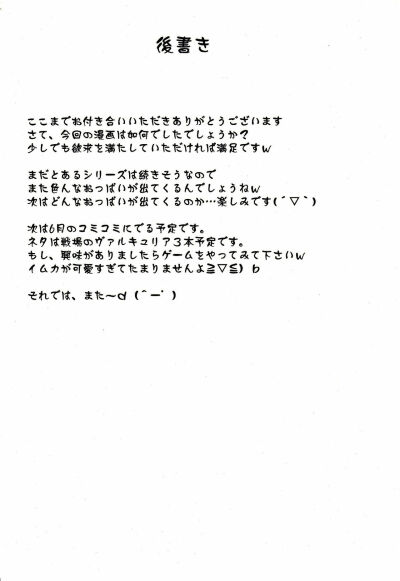 後書き
ここまでお付き合いいただきありがとうございます
さて、今回の漫画は如何でしたでしょうか？
少しでも欲求を満たしていただければ満足ですw
まだとあるシリーズは続きそうなので
また色んなおっぱいが出てくるんでしょうねw
次はどんなおっぱいが出てくるのか…楽しみです(´▽`)
次は6月のコミコミにでる予定です。
ネタは戦場のヴァルキュリア３本予定です。
もし、興味がありましたらゲームをやってみて下さいw
イムカが可愛すぎてたまりませんよ≧▽≦）b
それでは、また～d（＾ー゜）